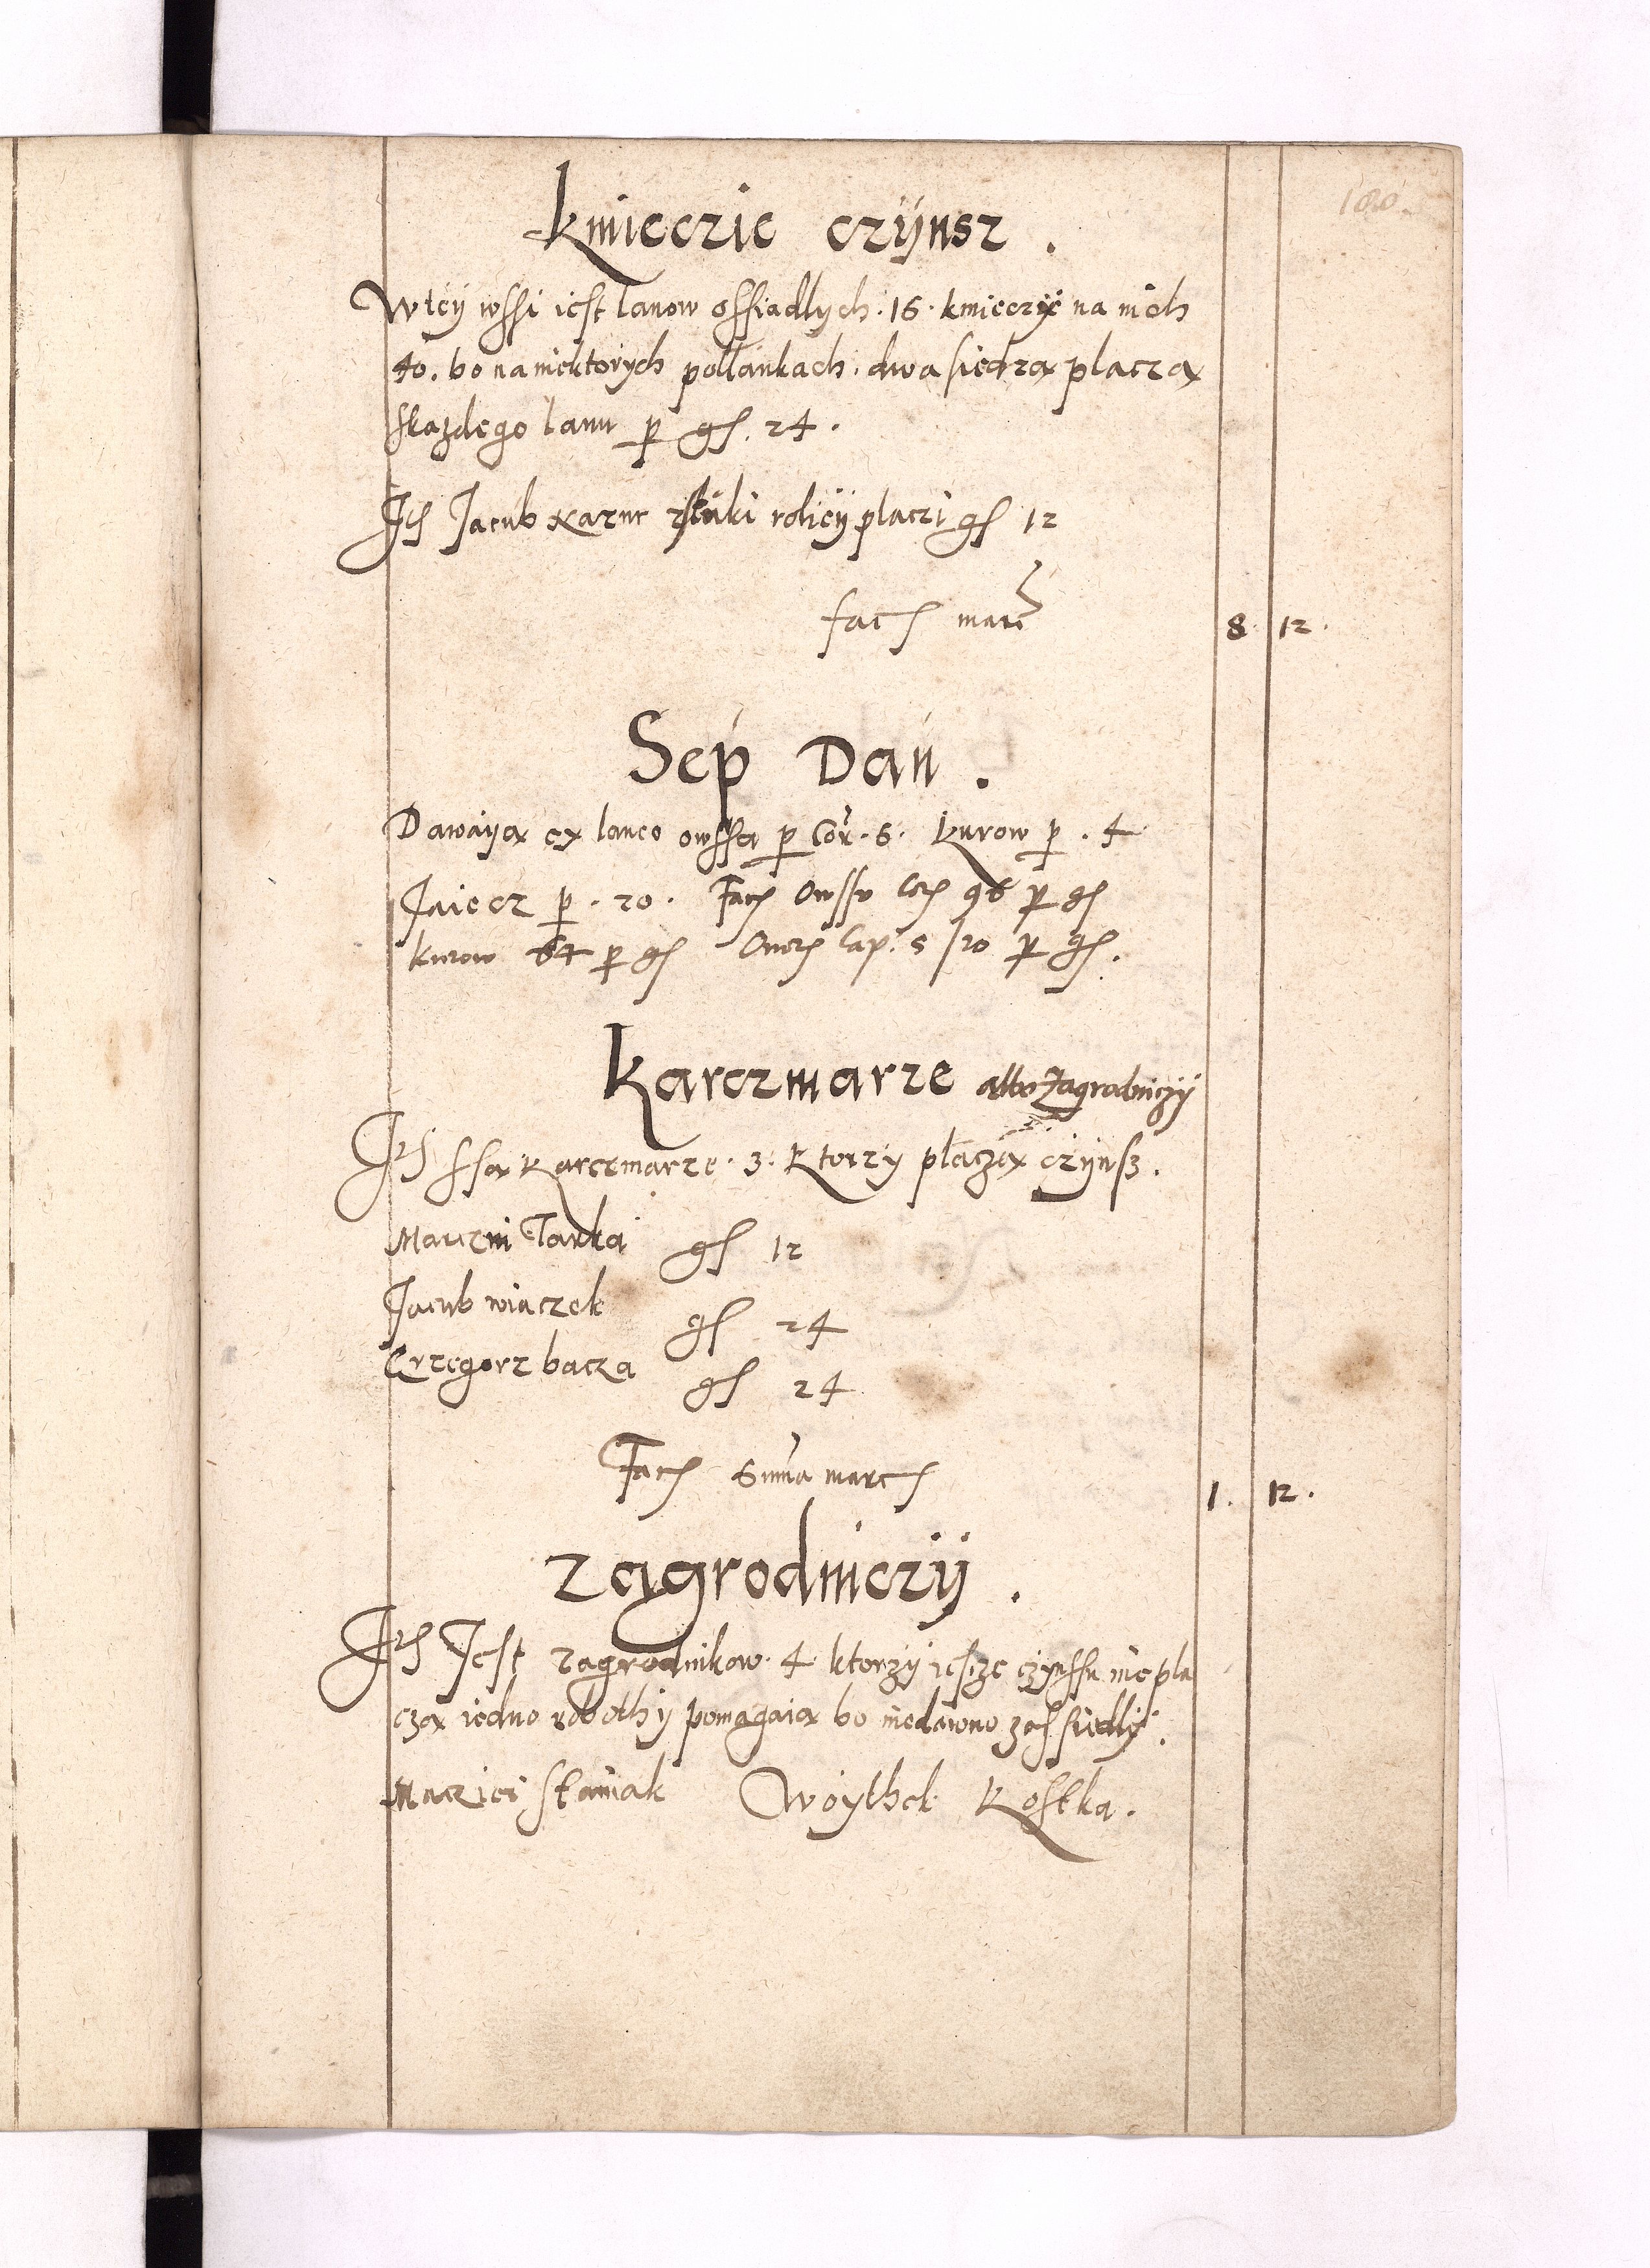 180.
kmieczie czÿnsz .
Wtey wssi iest lanow ossiadlych · 16 · kmieczÿ na nich
40. bo na niektorych pollankach · dwa siedzą placzą
skazdego lanu p gs. 24 .
Its Jacub Kazur zstuki roliey placzi gs 12
facs marc 8 · 12 ·
Sep Dań .
Dawaiją ex laneo owssa p Cor · 6 · kurow p · 4
Jaiecz p · 20 · Facs Owssu Cors 96 p gs
kurow 64 p gs Overs Cap. 5 / 20 p gs .
Karczmarze albo Zagrodniczÿ
Its ssą Karczmarze · 3 · Ktorzy płaczą czÿnsz .
Marczin Tarka gs 12
Jacub wiaczek gs 24
Grzegorz bacza gs 24
Facs Suma marcs 1 . 12 .
Zagrodniczÿ .
Its Jest Zagrodnikow · 4 · ktorzÿ iescze czÿnssu niepla
czą iedno robothÿ pomagaią bo niedawno zassiedlÿ .
Macziei Staniak Woythek Kostka .